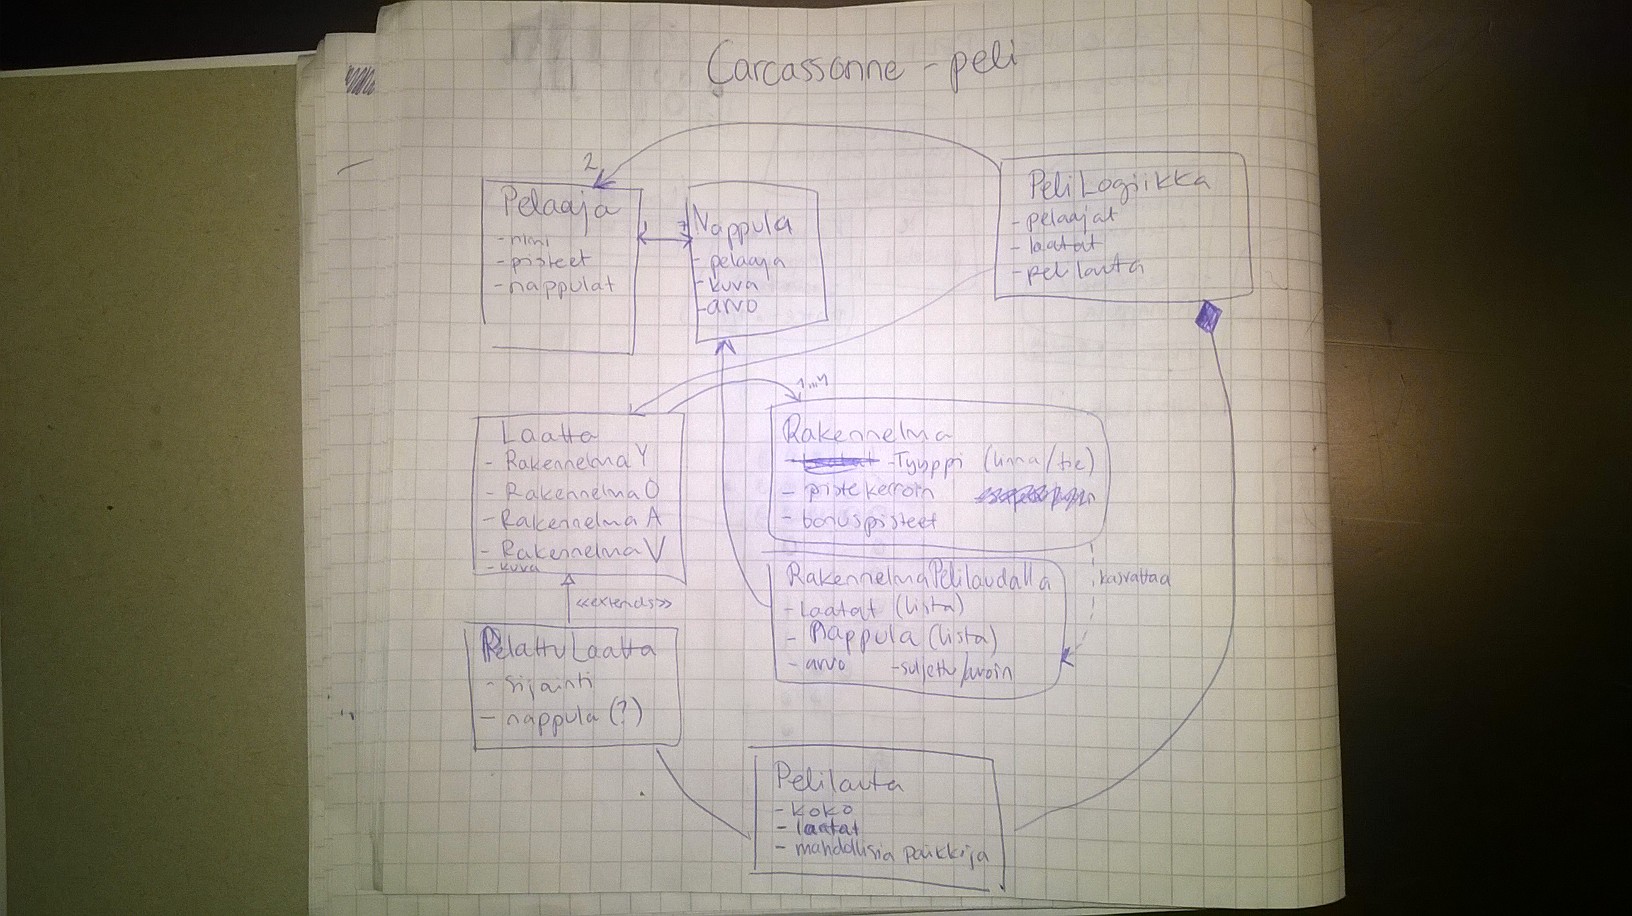 Carcassonne - peli
2
Pelaaja
- nimi
- pisteet
- nappulat
1
7
Nappula
- pelaaja
- kuva
- arvo
PeliLogiikka
- pelaajat
- laatat
- pelilauta
1...4
Laatta
- Rakennelma Y
- Rakennelma O
- Rakennelma A
- Rakennelma V
- kuva
<<extends>>
PelattuLaatta
- sijainti
- nappula (?)
Rakennelma
- Tyyppi (linna/tie)
- pistekerroin
- bonuspisteet
RakennelmaPelilaudalla
- Laatat (lista)
- Nappula (lista)
- arvo - suljettu/avoin
kasvattaa
Pelilauta
- koko
- laatat
- mahdollisia paikkoja